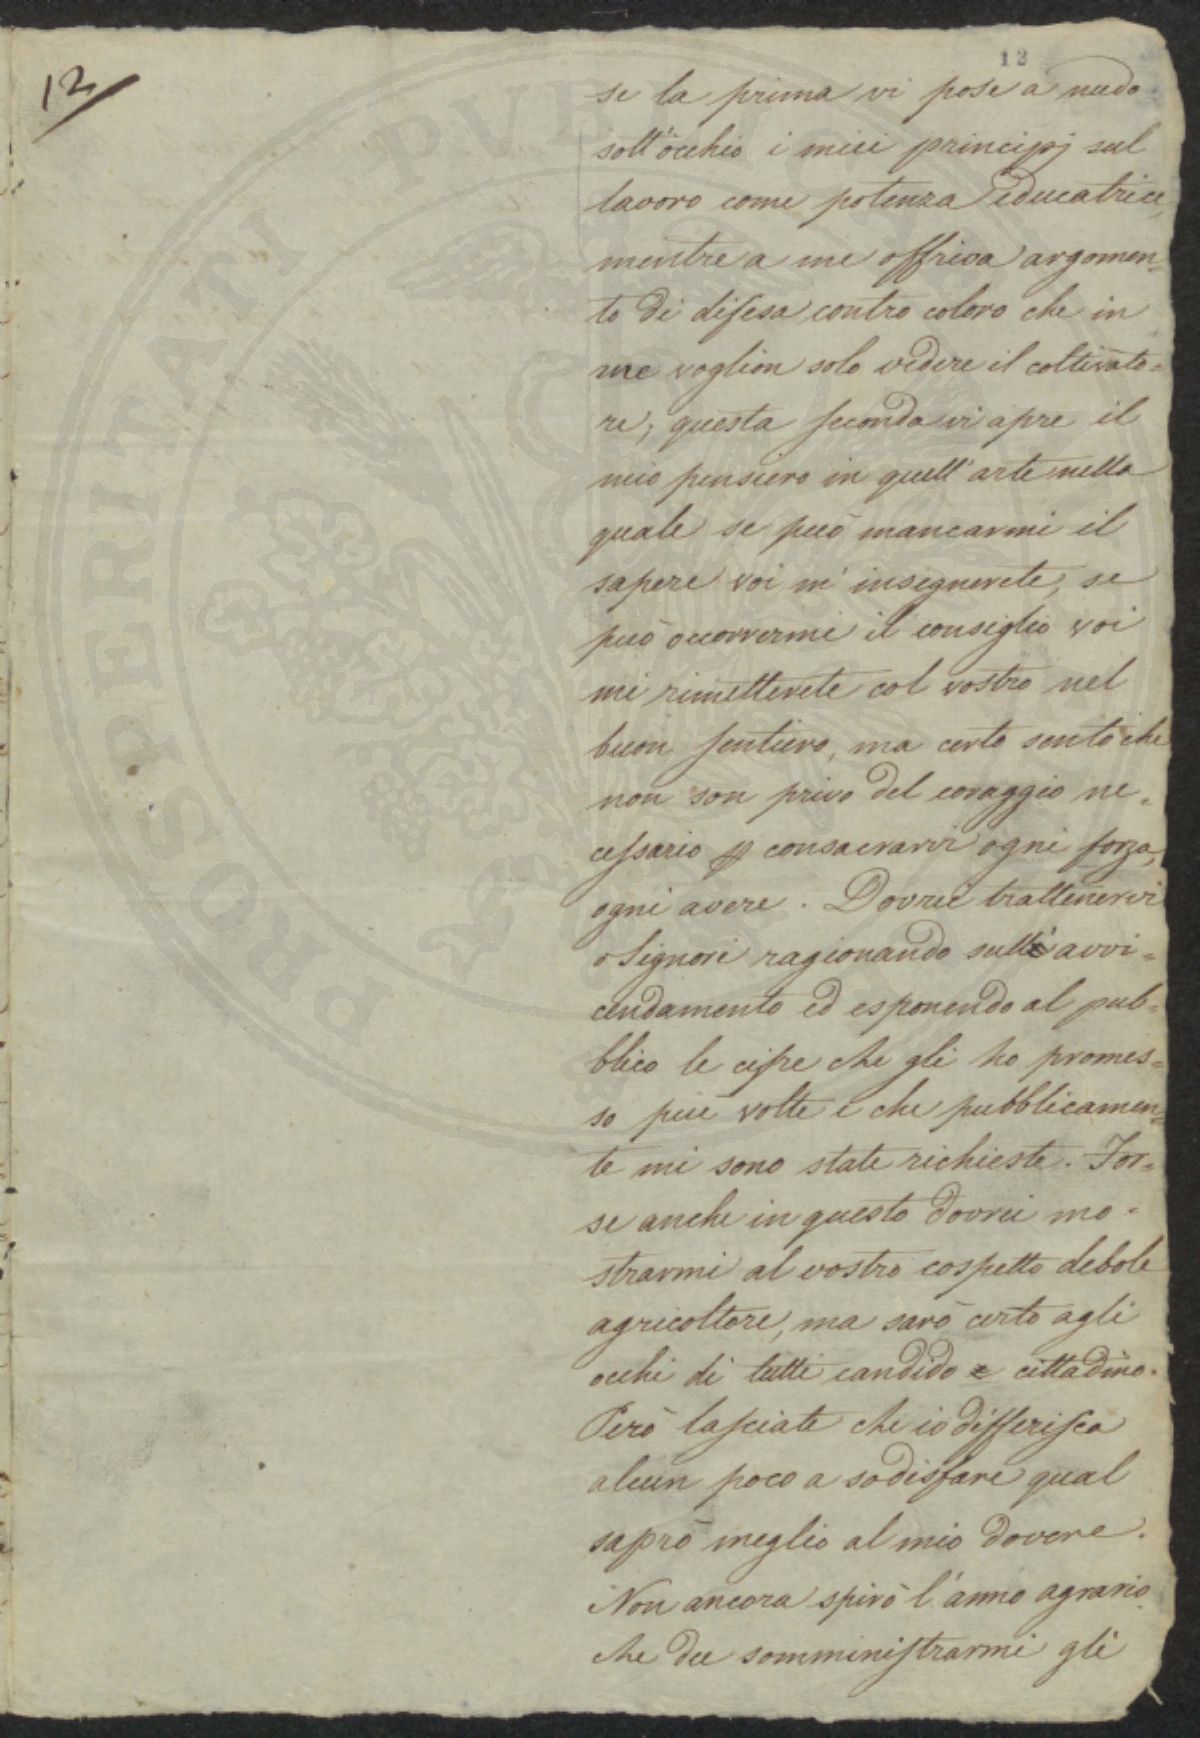 12
12
se la prima vi pose a nudo
sott'occhio i miei principj sul
lavoro come potenza educatrice,
mentre a me offriva argomen=
to di difesa contro coloro che in
me voglion solo vedere il coltivato=
re, questa seconda vi apre il
mio pensiero in quell'arte nella
quale se può mancarmi il
sapere voi m'insegnerete, se
può occorrermi il consiglio voi
mi rimetterete col vostro nel
buon sentiero, ma certo sento che
non son privo del coraggio ne=
cessario p consacrarvi ogni forza,
ogni avere. Dovrei trattenervi
o Signori ragionando sull'avvi=
cendamento ed esponendo al pub=
blico le cifre che gli ho promes=
so più volte e che pubblicamen=
te mi sono state richieste. For=
se anche in questo dovrei mo=
strarmi al vostro cospetto debole
agricoltore, ma sarò certo agli
occhi di tutti candido e cittadino.
Però lasciate che io differisca
alcun poco a sodisfare qual
saprò meglio al mio dovere.
Non ancora spirò l'anno agrario
che dee somministrarmi gli
PROSPERITATI PUBLICAE